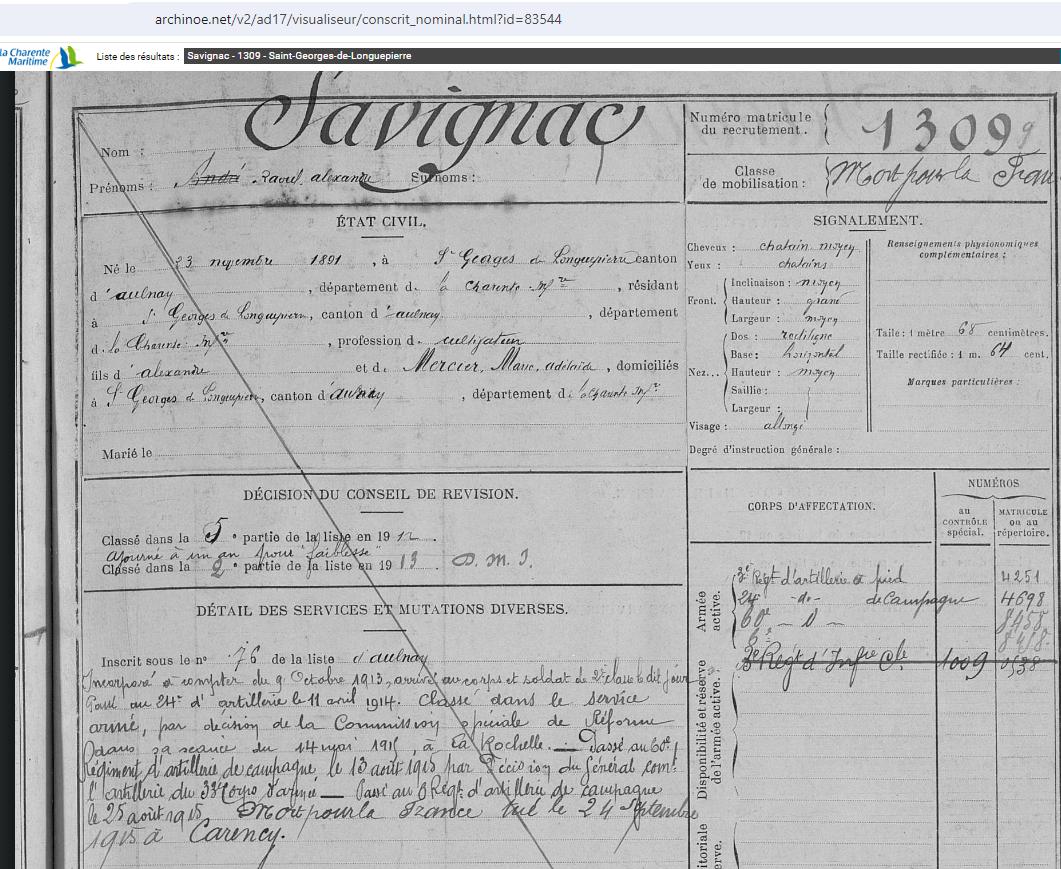 archinoe.net/v2/ad17/visualiseur/conscrit_nominal.html?id=83544
la Charente
Maritime
Liste des résultats :
Savignac - 1309 - Saint-Georges-de-Longuepierre
Nom : Savignac
Prénoms : André Raoul alexandre Surnoms :
Numéro matricule
du recrutement. 1309
Classe
de mobilisation : Mort pour la Fran
ÉTAT CIVIL.
Né le 23 novembre 1891, à St Georges de Longuepierre canton
d'aulnay, département de la Charente Infre, résidant
à St Georges de Longuepierre, canton d'aulnay, département
de la Charente Infre, profession de cultivateur
fils d'alexandre et de Mercier, Marie, adélaïde, domiciliés
à St Georges de Longuepierre, canton d'aulnay, département de la Charente Infre
Marié le
SIGNALEMENT.
Cheveux : chatain moyen
Yeux : chatains
Front. Inclinaison : moyen
Hauteur : grand
Largeur : moyen
Nez... Dos : rectiligne
Base : horizontal
Hauteur : moyen
Saillie :
Largeur :
Visage : allongé
Renseignements physionomiques
complémentaires :
Taille : 1 mètre 65 centimètres.
Taille rectifiée : 1 m. 64 cent.
Marques particulières :
Degré d'instruction générale :
DÉCISION DU CONSEIL DE REVISION.
Classé dans la 5e partie de la liste en 1912.
ajourné à un an pour "faiblesse"
Classé dans la 2e partie de la liste en 1913.
DÉTAIL DES SERVICES ET MUTATIONS DIVERSES.
Inscrit sous le no 76 de la liste d'aulnay
Incorporé à compter du 9 Octobre 1913, arrivé au corps et soldat de 2e classe le dit jour
Passé au 24e d'artillerie le 11 avril 1914. Classé dans le service
armé, par décision de la Commission spéciale de Réforme
dans sa séance du 14 mai 1915, à La Rochelle. — Passé au 60e
Régiment d'artillerie de campagne le 13 août 1915 par Décision du Général comt
l'artillerie du 33e Corps d'armée — Passé au 6 Régt d'artillerie de campagne
le 25 août 1915. Mort pour la France tué le 24 Septembre
1915 à Carency.
CORPS D'AFFECTATION.
NUMÉROS
au
CONTRÔLE
spécial.
MATRICULE
ou au
répertoire.
Armée
active.
3e Régt d'artillerie à pied 4251
24e -do- de Campagne 4698
60e — d —
6e
Régt d'Infrie Cle 1009
Disponibilité et réserve
de l'armée active.
itoriale
erve.